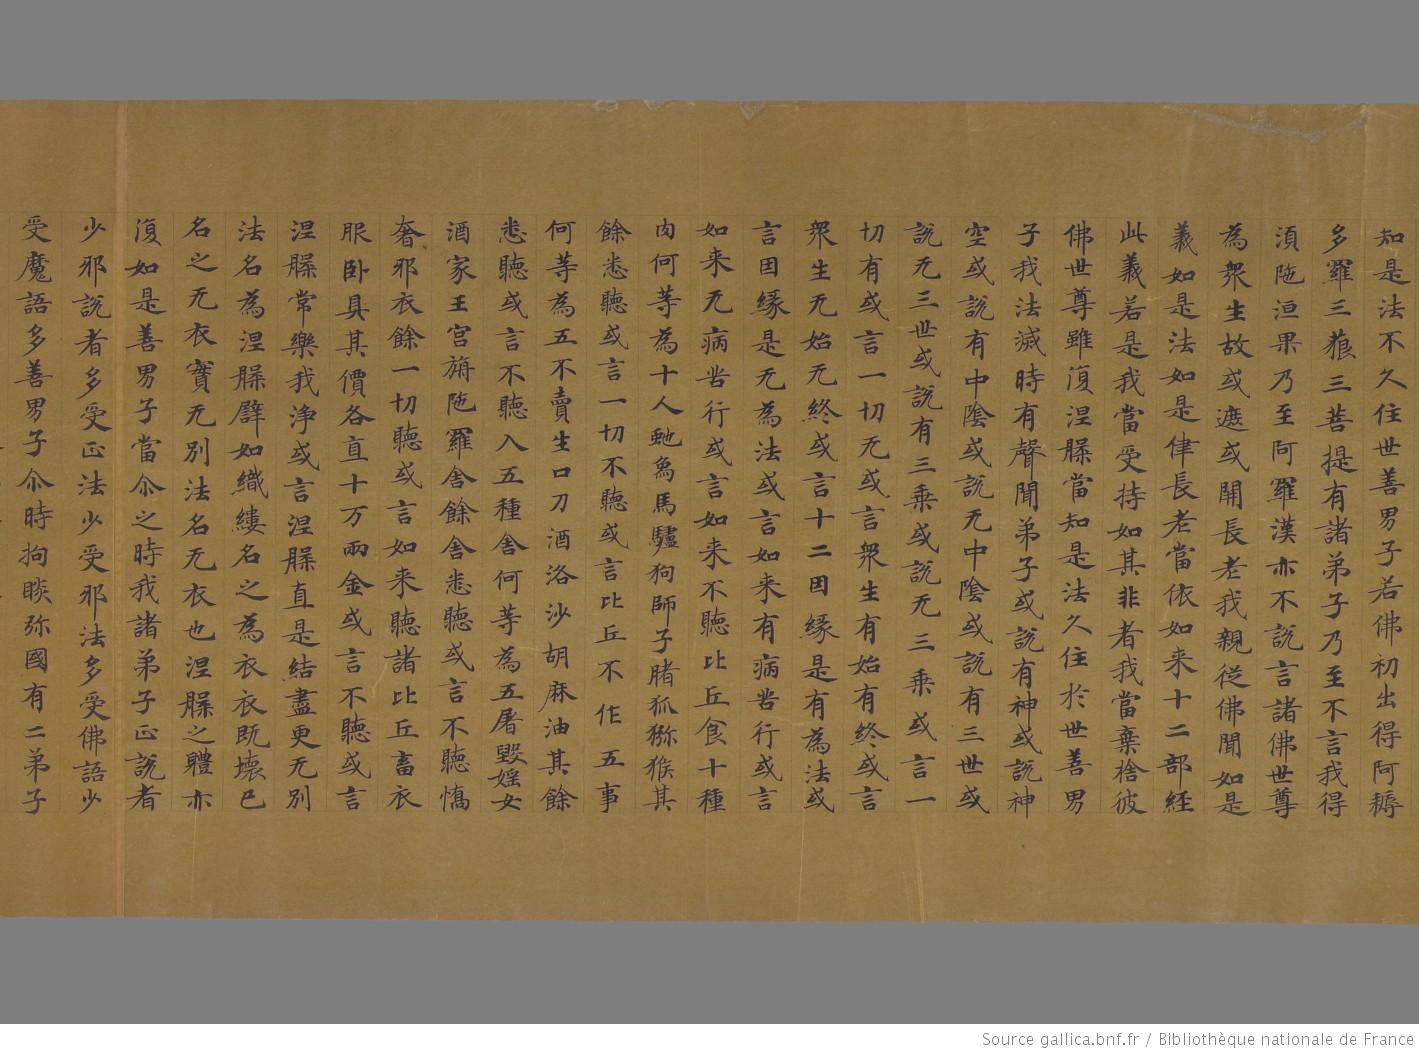 知是法不久住世善男子若佛初出得阿耨
多羅三藐三菩提有諸弟子乃至不言我得
湏陁洹果乃至阿羅漢亦不說言諸佛世尊
為衆生故或遮或開長老我親從佛聞如是
義如是法如是律長老當依如来十二部経
此義若是我當受持如其非者我當棄捨彼
佛世尊雖復涅槃當知是法久住於世善男
子我法滅時有聲聞弟子或說有神或說神
空或說有中陰或說无中陰或說有三世或
說无三世或說有三乘或說无三乘或言一
切有或言一切无或言衆生有始有終或言
衆生无始无終或言十二因縁是有為法或
言因縁是无為法或言如来有病苦行或言
如来无病苦行或言如来不聽比丘食十種
肉何等為十人虵象馬驢狗師子猪狐猕猴其
餘悉聽或言一切不聽或言比丘不作五事
何等為五不賣生口刀酒洛沙胡麻油其餘
悉聽或言不聽入五種舍何等為五屠毀婬女
酒家王宮旃陁羅舍餘舍悉聽或言不聽憍
奢邪衣餘一切聽或言如来聽諸比丘畜衣
服卧具其價各直十万兩金或言不聽或言
涅槃常樂我淨或言涅槃直是結盡更无別
法名為涅槃辟如織縷名之為衣衣既壞已
名之无衣實无別法名无衣也涅槃之體亦
復如是善男子當尒之時我諸弟子正說者
少邪說者多受正法少受邪法多受佛語少
受魔語多善男子尒時拘睒弥國有二弟子